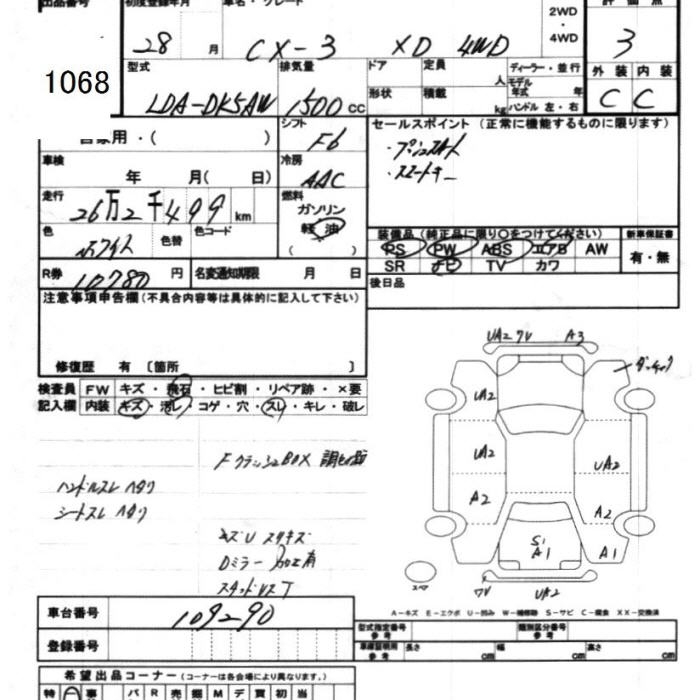 出品番号 初度登録年月 車名・グレード 評価点
28 月 CX-3 XD 4WD 2WD・4WD 3
1068
型式 排気量 ドア 定員 人 ディーラー・並行 外装 内装
モデル年式 年
LDA-DK5AW 1500 cc 形状 積載 kg ハンドル 左・右 C C
自家用・( ) シフト F6 セールスポイント (正常に機能するものに限ります)
・プッシュスタート
車検 年 月( 日) 冷房 AAC ・スマートキー
走行 26万2千499km 燃料 ガソリン 軽油 ( )
色 ホワイト 色替 色コード 装備品 (純正品に限り○をつけてください) 新車保証書
PS PW ABS エアB AW 有・無
R券 10780円 名変通知期限 月 日 SR ナビ TV カワ
後日品
注意事項申告欄 (不具合内容等は具体的に記入して下さい)
UA2 ワV A3
修復歴 有 〔箇所 〕
検査員 FW キズ・飛石・ヒビ割・リペア跡・×要
記入欄 内装 キズ・汚レ・コゲ・穴・スレ・キレ・破レ
UA2
UA2 UA2
A2 A2
S1
A1 A1
ハンドルスレ ヘタリ
シートスレ ヘタリ
Dミラー 加工有
スペア
ワV UA2
車台番号 109290
A-キズ E-エクボ U-凹み W-補修跡 S-サビ C-腐食 XX-交換済
登録番号
型式指定番号 参考 類別区分番号 参考
車庫証明用 参考 長さ cm 幅 cm 高さ cm
希望出品コーナー (コーナーは各会場により異なります。)
特 事 パ R 売 棚 M デ 買 初 当